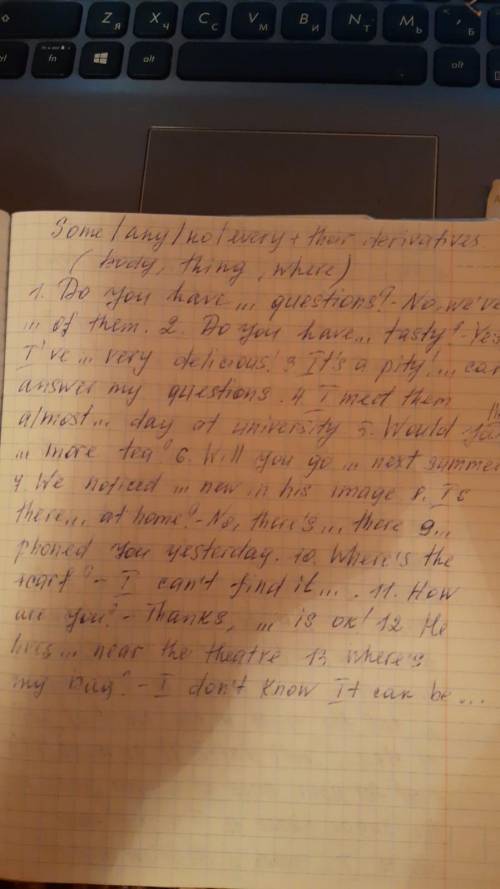 Z Я
X Ч
C С
V М
B И
N Т
M Ь
< , Б
ctrl
fn
alt
alt
Some/any/no/every + their derivatives
(body, thing, where)
1. Do you have ... questions? - No, we've
... of them. 2. Do you have ... tasty? - Yes
I've ... very delicious! 3 It's a pity! ... can
answer my questions. 4. I meet them
almost ... day at university 5. Would you
... more tea? 6. Will you go ... next summer
7. We noticed ... new in his image 8. Is
there ... at home? - No, there's ... there 9 ...
phoned you yesterday. 10. Where's the
scarf? - I can't find it ... . 11. How
are you? - Thanks, ... is ok! 12 He
lives ... near the theatre 13 where's
my bag? - I don't know It can be ...